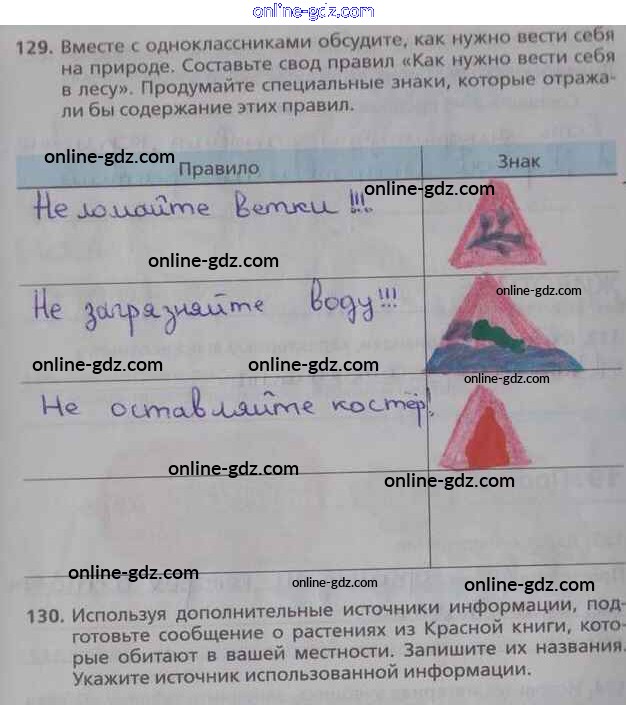 online-gdz.com
129. Вместе с одноклассниками обсудите, как нужно вести себя
на природе. Составьте свод правил «Как нужно вести себя
в лесу». Продумайте специальные знаки, которые отража-
ли бы содержание этих правил.
online-gdz.com
Правило Знак
online-gdz.com
Не ломайте ветки !!!
online-gdz.com
online-gdz.com
Не загрязняйте воду!!!
online-gdz.com online-gdz.com
online-gdz.com
Не оставляйте костёр!
online-gdz.com
online-gdz.com
online-gdz.com
online-gdz.com
online-gdz.com
130. Используя дополнительные источники информации, под-
готовьте сообщение о растениях из Красной книги, кото-
рые обитают в вашей местности. Запишите их названия.
Укажите источник использованной информации.